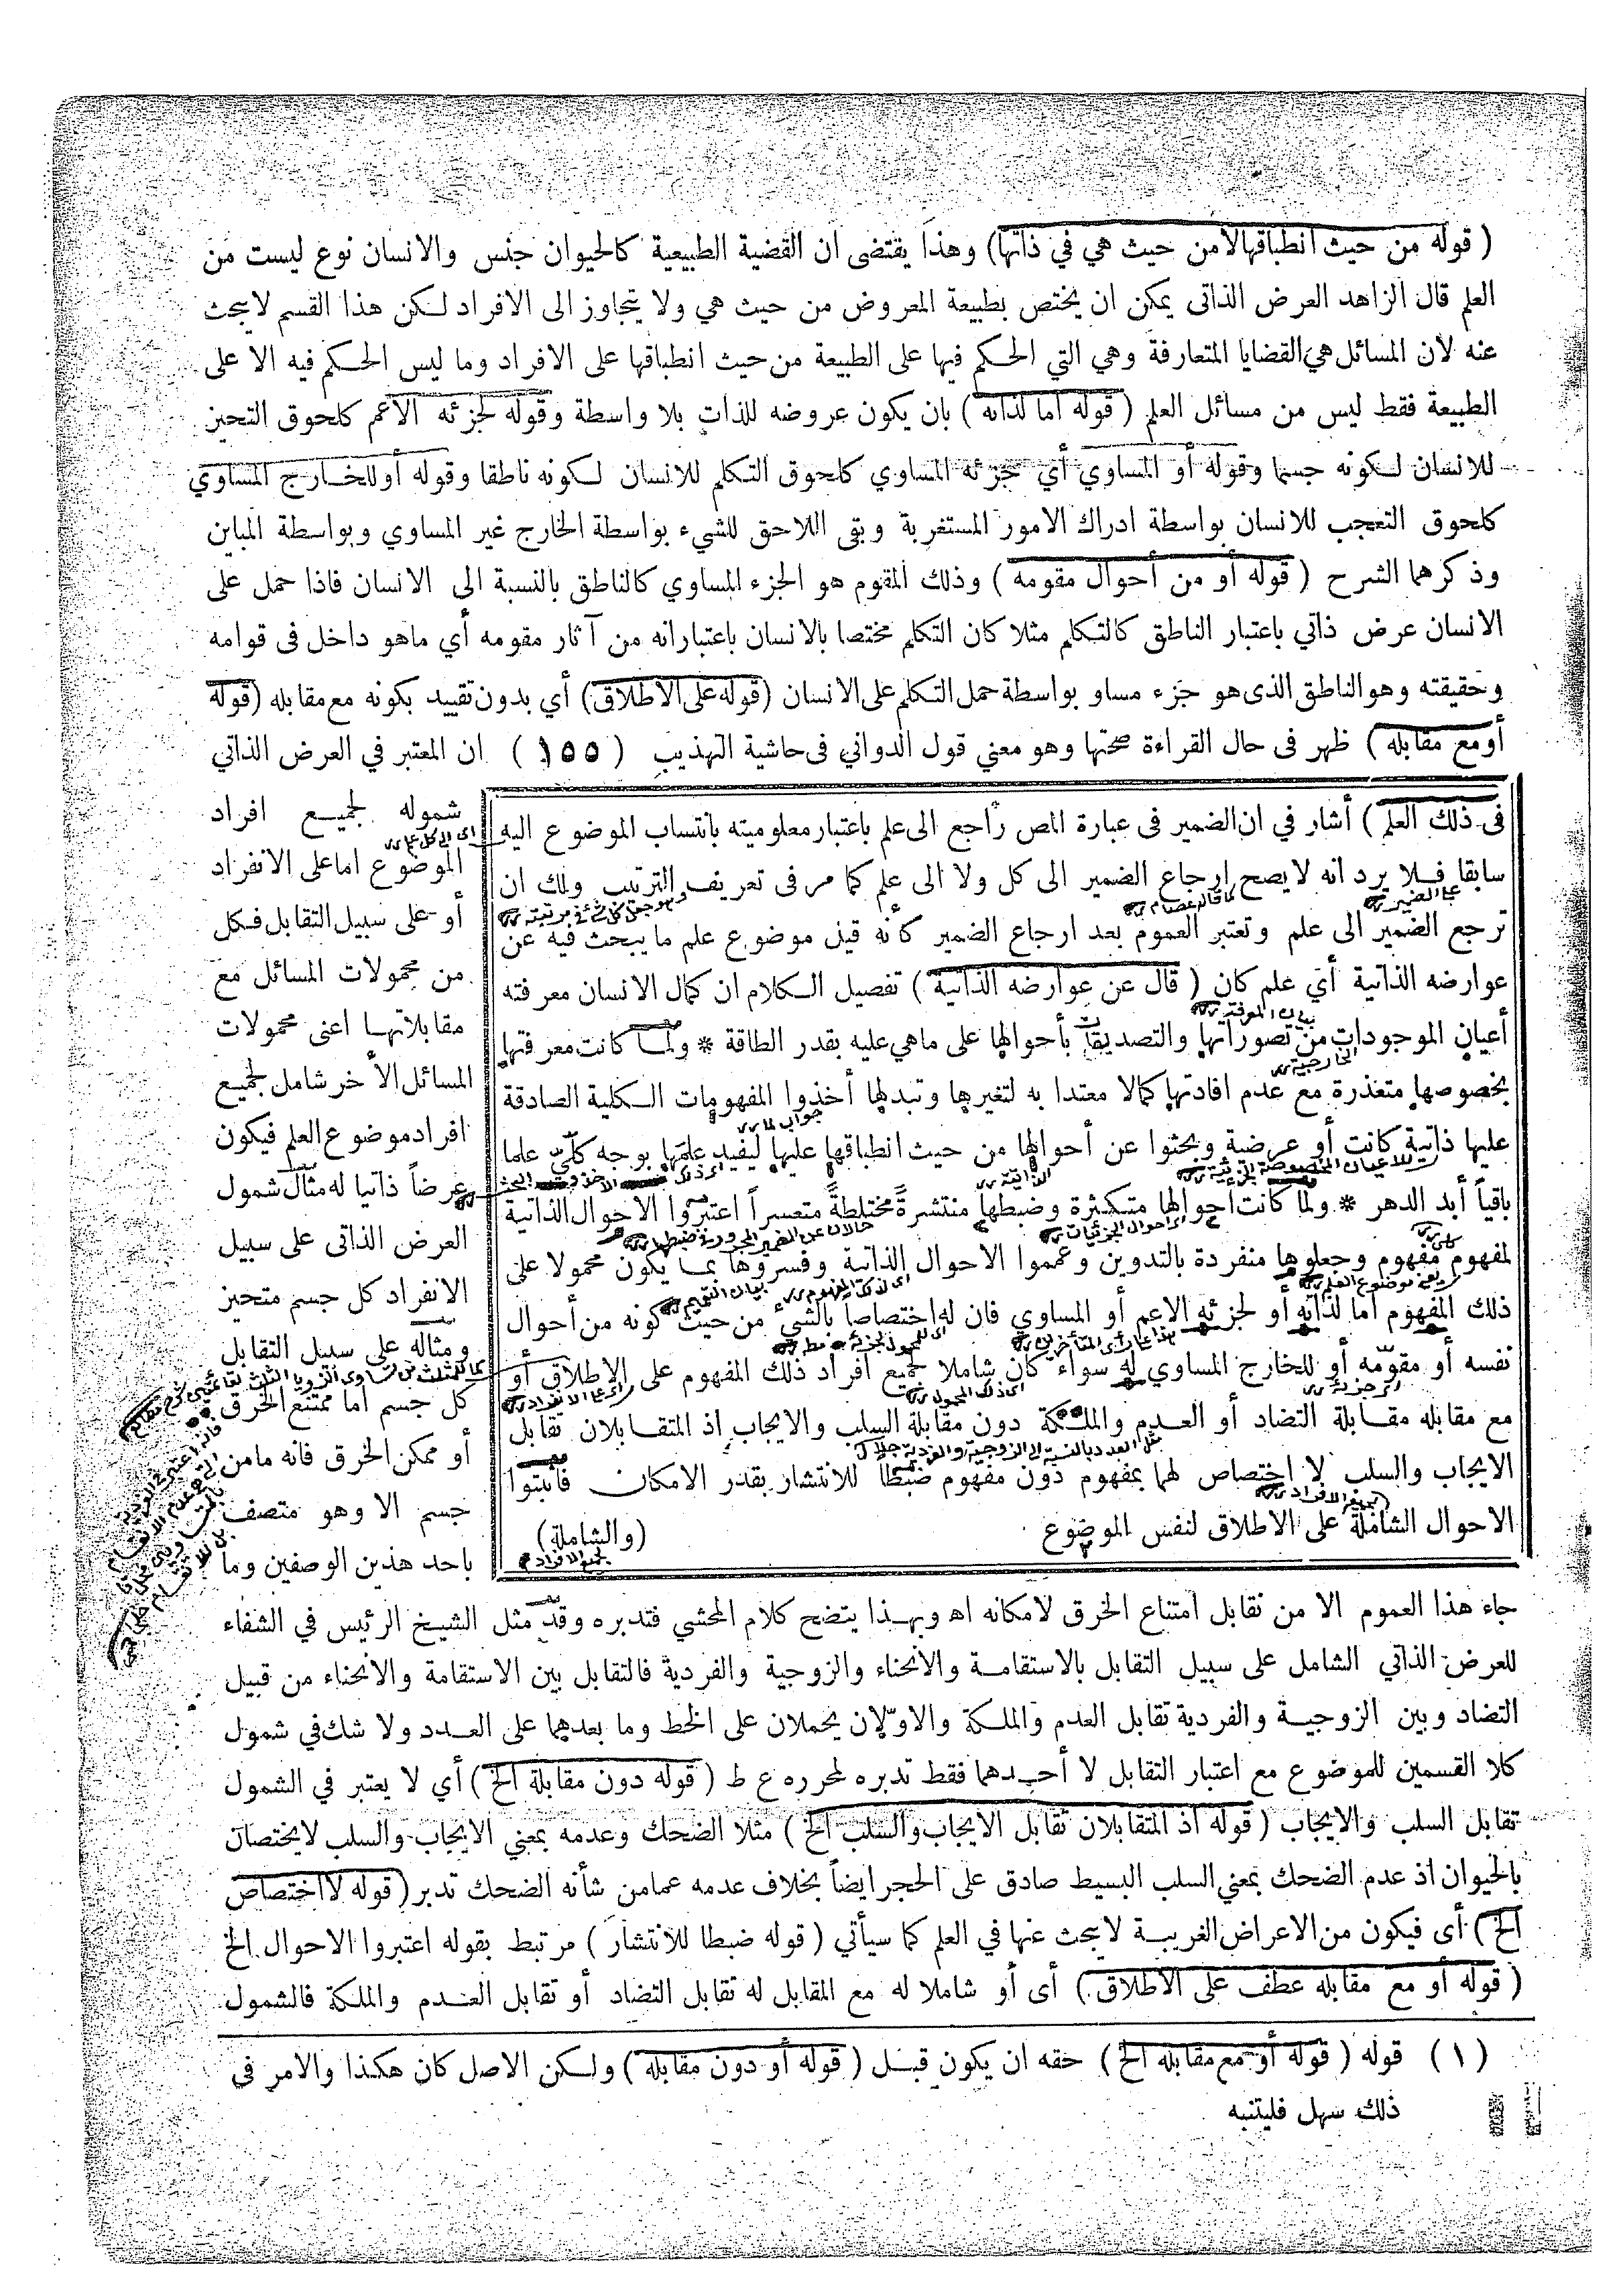 ( قوله من حيث انطباقها لا من حيث هي في ذاتها) وهذا يقتضى ان القضية الطبيعية كالحيوان جنس والانسان نوع ليست من
العلم قال الزاهد العرض الذاتى يمكن ان يختص بطبيعة المعروض من حيث هي ولا يتجاوز الى الافراد لكن هذا القسم لا يبحث
عنه لان المسائل هي القضايا المتعارفة وهي التي الحكم فيها على الطبيعة من حيث انطباقها على الافراد وما ليس الحكم فيه الا على
الطبيعة فقط ليس من مسائل العلم ( قوله اما لذاته ) بان يكون عروضه للذات بلا واسطة وقوله لجزئه الاعم كلحوق التحيز
للانسان لكونه جسما وقوله أو المساوي أي جزئه المساوي كلحوق التكلم للانسان لكونه ناطقا وقوله أو للخارج المساوي
كلحوق التعجب للانسان بواسطة ادراك الامور المستغربة وبقى اللاحق للشيء بواسطة الخارج غير المساوي وبواسطة المباين
وذكرهما الشرح ( قوله أو من أحوال مقومه ) وذلك المقوم هو الجزء المساوي كالناطق بالنسبة الى الانسان فاذا حمل على
الانسان عرض ذاتي باعتبار الناطق كالتكلم مثلا كان التكلم مختصا بالانسان باعتبار انه من آثار مقومه أي ماهو داخل فى قوامه
وحقيقته وهو الناطق الذى هو جزء مساو بواسطة حمل التكلم على الانسان (قوله على الاطلاق) أي بدون تقييد بكونه مع مقابله (قوله
أو مع مقابله ) ظهر فى حال القراءة صحتها وهو معني قول الدواني فى حاشية التهذيب ( ١٥٥ ) ان المعتبر في العرض الذاتي
شموله لجميع افراد
الموضوع اما على الانفراد
أو على سبيل التقابل فكل
من محمولات المسائل مع
مقابلاتها اعنى محمولات
المسائل الأخر شامل لجميع
افراد موضوع العلم فيكون
عرضاً ذاتيا له مثال شمول
العرض الذاتى على سبيل
الانفراد كل جسم متحيز
ومثاله على سبيل التقابل
كل جسم اما ممتنع الخرق
أو ممكن الخرق فانه مامن
جسم الا وهو متصف
باحد هذين الوصفين وما
فى ذلك العلم ) أشار في ان الضمير فى عبارة المص راجع الى علم باعتبار معلوميته بانتساب الموضوع اليه
سابقا فلا يرد انه لا يصح ارجاع الضمير الى كل ولا الى علم كما مر فى تعريف الترتيب ولك ان
ترجع الضمير الى علم وتعتبر العموم بعد ارجاع الضمير كأنه قيل موضوع علم ما يبحث فيه عن
عوارضه الذاتية أي علم كان ( قال عن عوارضه الذاتية ) تفصيل الكلام ان كمال الانسان معرفته
أعيان الموجودات من تصوراتها والتصديقات بأحوالها على ماهي عليه بقدر الطاقة * ولما كانت معرفتها
بخصوصها متعذرة مع عدم افادتها كمالا معتدا به لتغيرها وتبدلها أخذوا المفهومات الكلية الصادقة
عليها ذاتية كانت أو عرضية وبحثوا عن أحوالها من حيث انطباقها عليها ليفيد علمها بوجه كلّيّ علما
باقياً أبد الدهر * ولما كانت احوالها متكثرة وضبطها منتشرةً مختلطةً متعسراً اعتبروا الاحوال الذاتية
لمفهوم مفهوم وجعلوها منفردة بالتدوين وعمموا الاحوال الذاتية وفسروها بما يكون محمولا على
ذلك المفهوم اما لذاته أو لجزئه الاعم أو المساوي فان له اختصاصاً بالشيء من حيث كونه من أحوال
نفسه أو مقوّمه أو للخارج المساوي له سواء كان شاملا لجميع افراد ذلك المفهوم على الاطلاق أو
مع مقابله مقابلة التضاد أو العدم والملكة دون مقابلة السلب والايجاب اذ المتقابلان تقابل
الايجاب والسلب لا اختصاص لهما بمفهوم دون مفهوم ضبطاً للانتشار بقدر الامكان فأثبتوا
الاحوال الشاملة على الاطلاق لنفس الموضوع (والشاملة)
جاء هذا العموم الا من تقابل امتناع الخرق لامكانه اه وبهذا يتضح كلام المحشي فتدبره وقد مثل الشيخ الرئيس في الشفاء
للعرض الذاتي الشامل على سبيل التقابل بالاستقامة والانحناء والزوجية والفردية فالتقابل بين الاستقامة والانحناء من قبيل
التضاد وبين الزوجية والفردية تقابل العدم والملكة والاوّلان يحملان على الخط وما بعدهما على العدد ولا شك في شمول
كلا القسمين للموضوع مع اعتبار التقابل لا أحدهما فقط تدبره لمحرره ع ط ( قوله دون مقابلة الخ ) أي لا يعتبر في الشمول
تقابل السلب والايجاب ( قوله اذ المتقابلان تقابل الايجاب والسلب الخ ) مثلا الضحك وعدمه بمعني الايجاب والسلب لا يختصان
بالحيوان اذ عدم الضحك بمعني السلب البسيط صادق على الحجر ايضاً بخلاف عدمه عما من شأنه الضحك تدبر (قوله لا اختصاص
الخ ) أى فيكون من الاعراض الغريبة لا يبحث عنها في العلم كما سيأتي ( قوله ضبطا للانتشار ) مرتبط بقوله اعتبروا الاحوال الخ
( قوله أو مع مقابله عطف على الاطلاق ) أى أو شاملا له مع المقابل له تقابل التضاد أو تقابل العدم والملكة فالشمول
(١) قوله ( قوله أو مع مقابله الخ ) حقه ان يكون قبل ( قوله أو دون مقابله ) ولكن الاصل كان هكذا والامر في
ذلك سهل فليتنبه